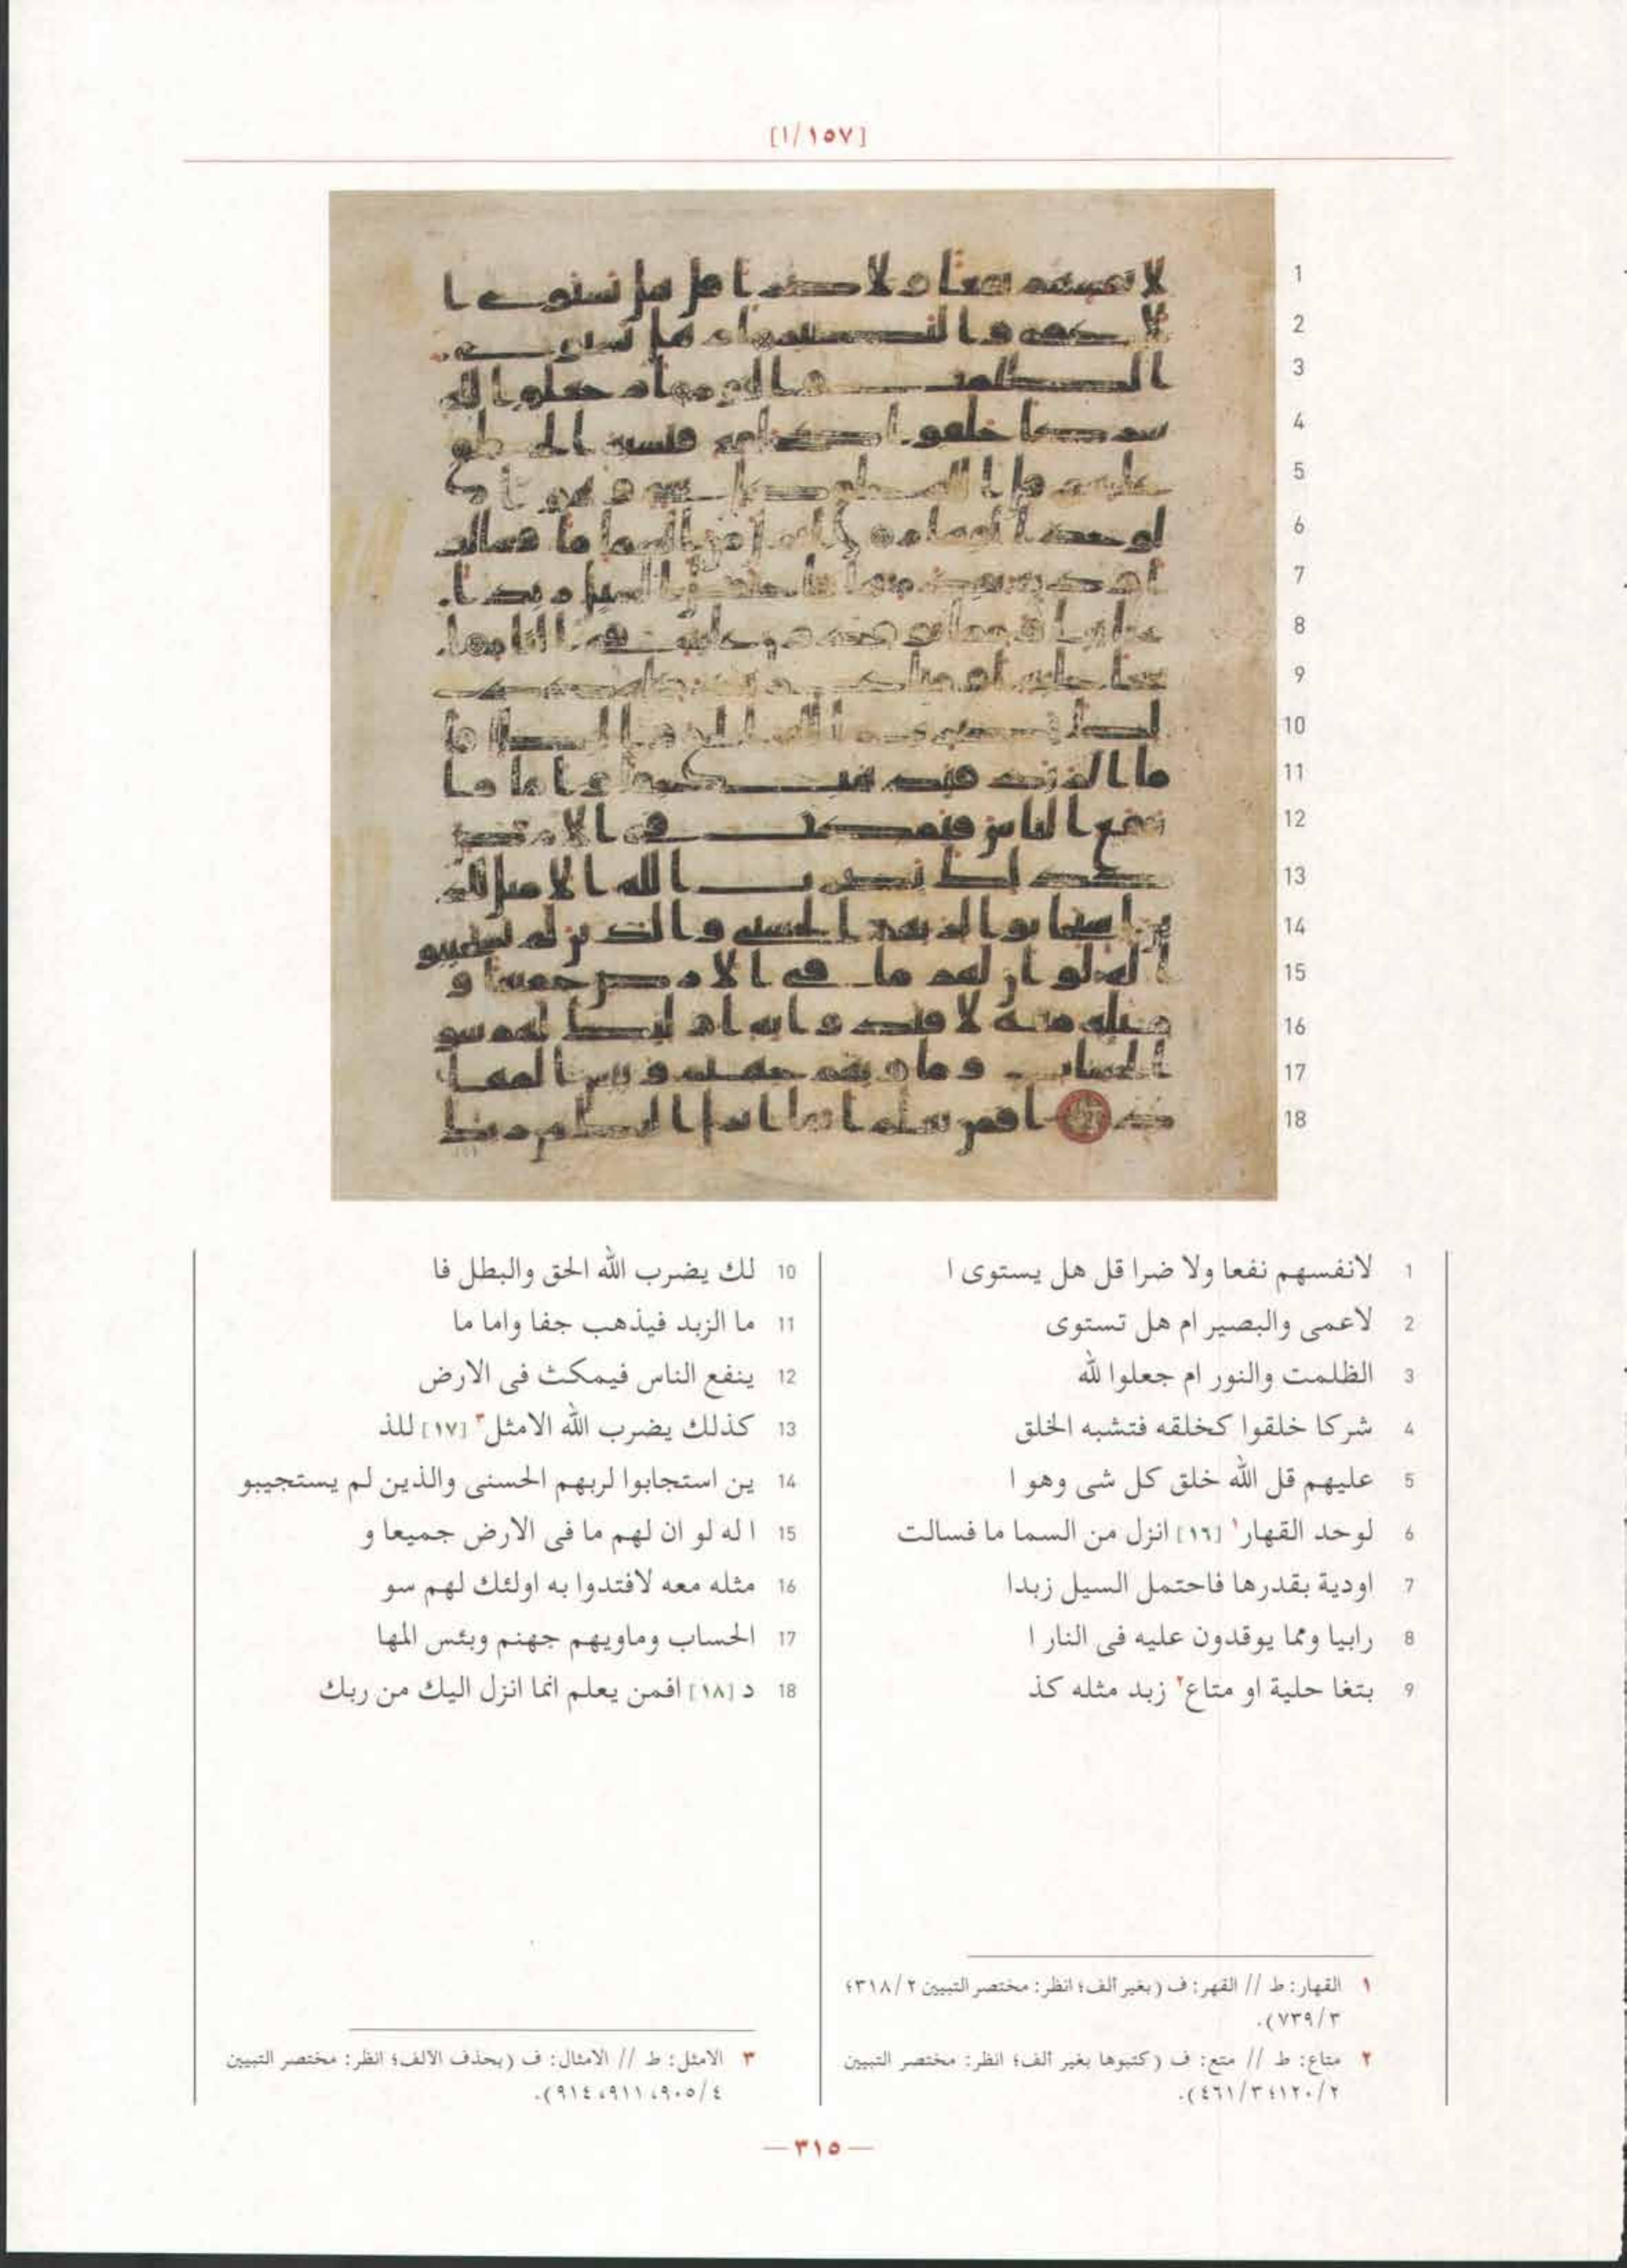 [١/١٥٧]
1 لانفسهم نفعا ولا ضرا قل هل يستوى ا
2 لاعمى والبصير ام هل تستوى
3 الظلمت والنور ام جعلوا لله
4 شركا خلقوا كخلقه فتشبه الخلق
5 عليهم قل الله خلق كل شى وهو ا
6 لوحد القهار١ [١٦] انزل من السما ما فسالت
7 اودية بقدرها فاحتمل السيل زبدا
8 رابيا ومما يوقدون عليه فى النار ا
9 بتغا حلية او متاع٢ زبد مثله كذ
10 لك يضرب الله الحق والبطل فا
11 ما الزبد فيذهب جفا واما ما
12 ينفع الناس فيمكث فى الارض
13 كذلك يضرب الله الامثل٣ [١٧] للذ
14 ين استجابوا لربهم الحسنى والذين لم يستجيبو
15 ا له لو ان لهم ما فى الارض جميعا و
16 مثله معه لافتدوا به اولئك لهم سو
17 الحساب وماويهم جهنم وبئس المها
18 د [١٨] افمن يعلم انما انزل اليك من ربك
١ القهار: ط // القهر: ف (بغير ألف؛ انظر: مختصر التبيين ٢/٣١٨؛
٣/٧٣٩).
٢ متاع: ط // متع: ف (كتبوها بغير ألف؛ انظر: مختصر التبيين
٢/١٢٠؛ ٣/٤٦١).
٣ الامثل: ط // الامثال: ف (بحذف الالف؛ انظر: مختصر التبيين
٤/٩٠٥، ٩١١، ٩١٤).
— ٣١٥ —